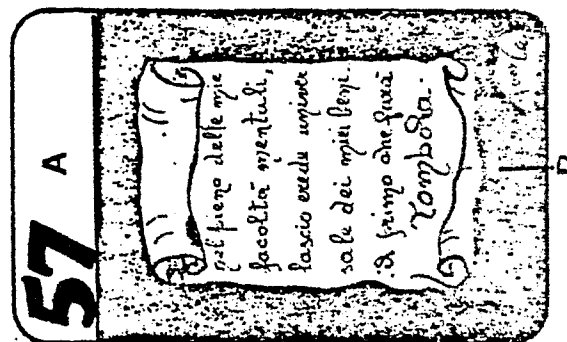 57 A
nel pieno delle mie
facoltà mentali,
lascio erede univer
sale dei miei beni
il primo che farà
Tombola.
B